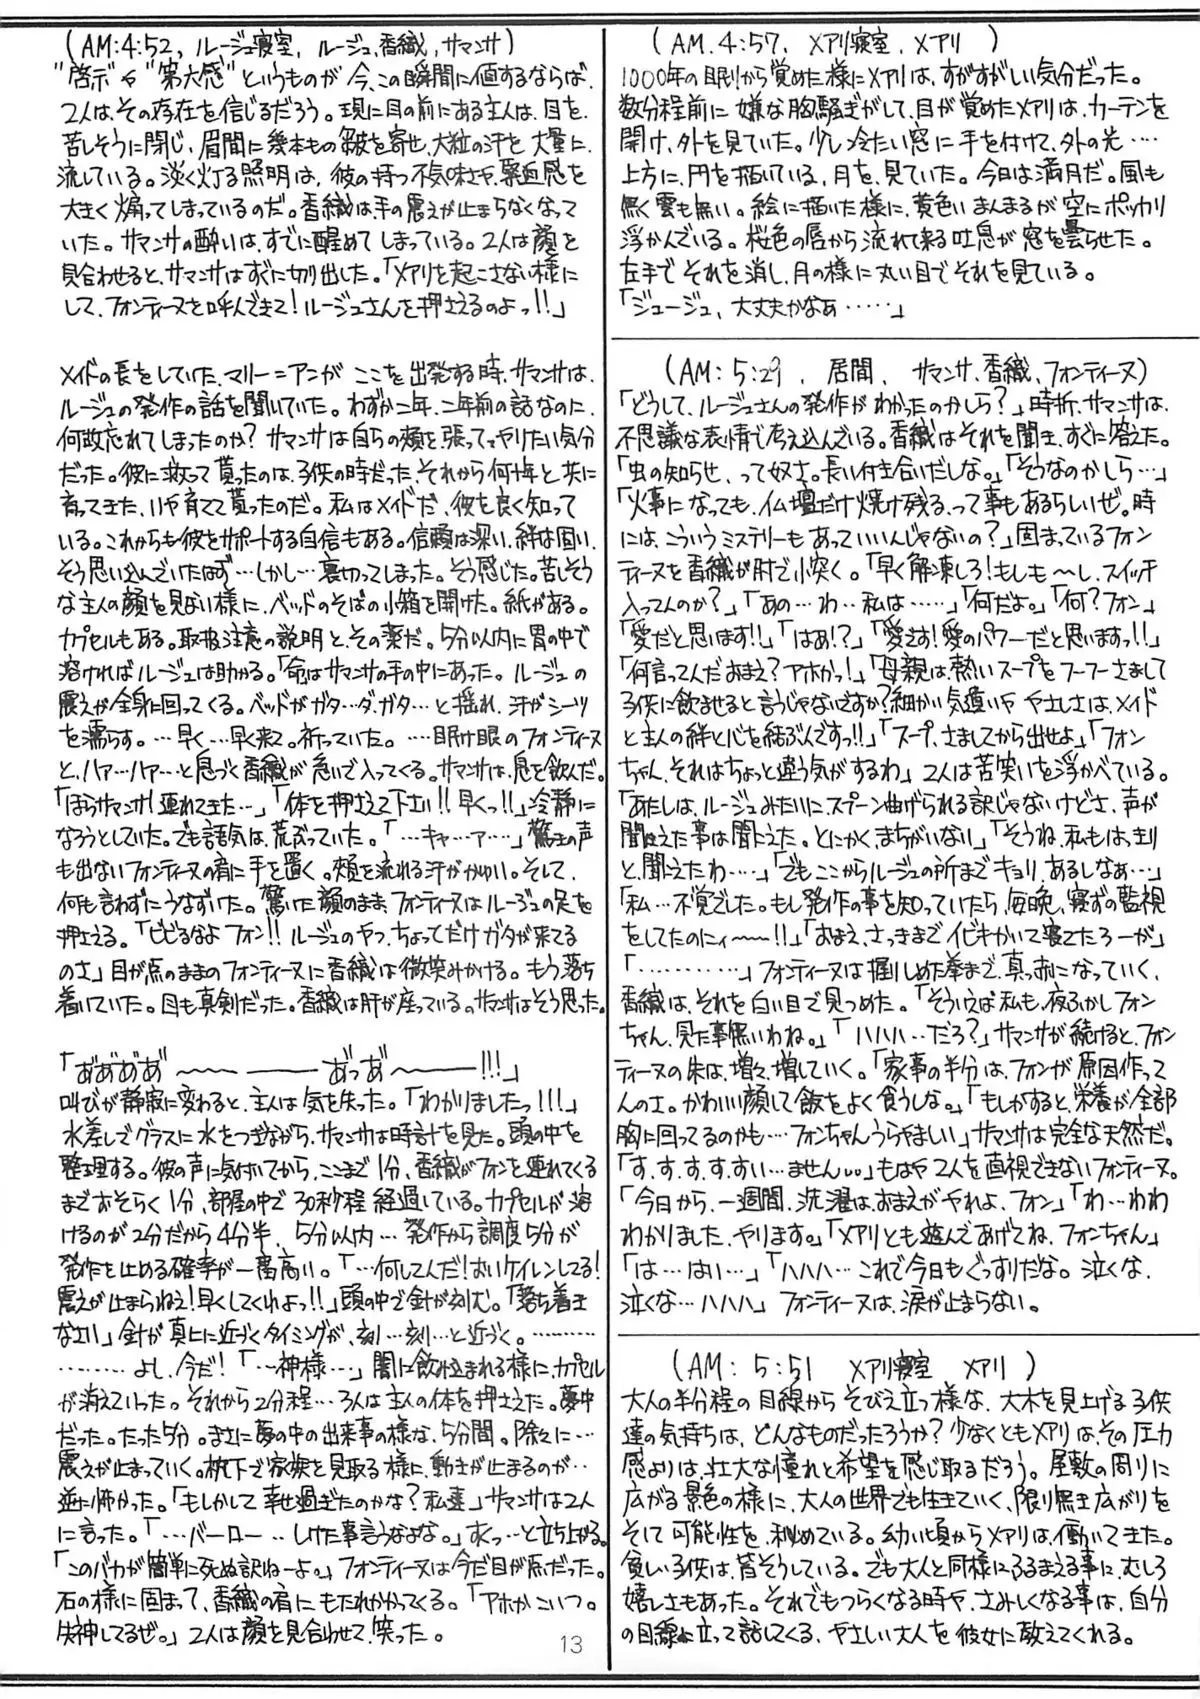 (AM:4:52, ルージュ寝室, ルージュ、香織, サマンサ)
"啓示"や"第六感"というものが今、この瞬間に値するならば、
2人はその存在を信じるだろう。現に目の前にある主人は、目を、
苦しそうに閉じ、眉間に幾本もの皺を寄せ、大粒の汗を大量に、
流している。淡く灯る照明は、彼の持つ不気味さや、緊迫感を
大きく煽ってしまっているのだ。香織は、手の震えが止まらなくなって
いた。サマンサの酔いは、すでに醒めてしまっている。2人は顔を
見合わせると、サマンサはすぐに切り出した。「メアリを起こさない様に
して、フォンティーヌを呼んできて!ルージュさんを押さえるのよっ!!」
メイドの長をしていた、マリー=アンがここを出発する時、サマンサは、
ルージュの発作の話を聞いていた。わずか二年、二年前の話なのに、
何故忘れてしまったのか?サマンサは自らの頬を張ってやりたい気分
だった。彼に救って貰ったのは、子供の時だった、それから何十年と、共に
育ってきた、いや育てて貰ったのだ。私はメイドだ、彼を良く知って
いる。これからも彼をサポートする自信もある。信頼は深い、絆は固い、
そう思い込んでいたはず…しかし…裏切ってしまった。そう感じた。苦しそう
な主人の顔を見ない様に、ベッドのそばの小箱を開けた。紙がある。
カプセルもある。取扱注意の説明と、その薬だ。5分以内に胃の中で
溶ければルージュは助かる。「命はサマンサの手の中にあった。ルージュの
震えが全身に回ってくる。ベッドがガタ…ダ、ガタ…と揺れ、汗がシーツ
を濡らす。…早く…早く来て。祈っていた。….眠け眼のフォンティーヌ
と、ハァ…ハァ…と息づく香織が急いで入ってくる。サマンサは、息を飲んだ。
「ほらサマンサ!連れてきた…」「体を押さえて下さい!!早くっ!!」冷静に
なろうとしていた。でも語気は、荒ぶっていた。「…キャ…ァ…」驚きの声
も出ないフォンティーヌの肩に手を置く。頬を流れる汗がかゆい。そして、
何も言わずにうなずいた。驚いた顔のまま、フォンティーヌはルージュの足を
押さえる。「ビビるなよフォン!!ルージュのやつ、ちょってだけガタが来てる
のさ」目が点のままのフォンティーヌに香織は微笑みかける。もう落ち
着いていた。目も真剣だった。香織は肝が座っている。サマンサはそう思った。
「あ゛あ゛あ゛あ゛〜〜――――あ゛っあ゛〜―――!!!」
叫びが静寂に変わると、主人は気を失った。「わかりましたっ!!!」
水差しでグラスに水をつぎながら、サマンサは時計を見た。頭の中を
整理する。彼の声に気付いてから、ここまで1分、香織がフォンを連れてくる
までおそらく1分、部屋の中で30秒程経過している。カプセルが溶
けるのが2分だから4分半、5分以内…発作から調度5分が
発作を止める確率が一番高い。「…何してんだ!おいケイレンしてる!
震えが止まらねえ!早くしてくれよっ!!」頭の中で針が刻む。「落ち着き
なさい」針が真上に近づくタイミングが、刻…刻…と近づく。…………
…………よし、今だ!「…神様…」闇に飲み込まれる様に、カプセル
が消えていった。それから2分程…3人は主人の体を押さえた。夢中
だった。たった5分。まさに夢の中の出来事の様な、5分間。徐々に…
震えが止まっていく。枕下で家族を見取る様に、動きが止まるのが…
逆に怖かった。「もしかして幸せ過ぎたのかな?私達」サマンサは2人
に言った。「…バーロー…しけた事言うなよな。」すくっ…と立ち上がる。
「このバカが簡単に死ぬ訳ねーよ。」フォンティーヌは今だ目が点だった。
石の様に固まって、香織の肩にもたれかかってくる。「アホかこいつ。
失神してるぜ。」2人は顔を見合わせて、笑った。
(AM.4:57, メアリ寝室, メアリ )
1000年の眠りから覚めた様にメアリは、すがすがしい気分だった。
数分程前に嫌な胸騒ぎがして、目が覚めたメアリは、カーテンを
開け、外を見ていた。少し冷たい窓に手を付けて、外の光….
上方に、円を描いている、月を、見ていた。今日は満月だ。風も
無く雲も無い。絵に描いた様に、黄色いまんまるが空にポッカリ
浮かんでいる。桜色の唇から流れて来る吐息が窓を曇らせた。
左手でそれを消し、月の様に丸い目でそれを見ている。
「ジュージュ、大丈夫かなぁ……」
(AM:5:29, 居間, サマンサ、香織、フォンティーヌ)
「どうして、ルージュさんの発作がわかったのかしら?」時折、サマンサは、
不思議な表情で考え込んでいる。香織はそれを聞き、すぐに答えた。
「虫の知らせ、って奴さ。長い付き合いだしな。」「そうなのかしら…」
「火事になっても、仏壇だけ焼け残る、って事もあるらしいぜ。時
には、こういうミステリーもあっていいんじゃないの?」固まっているフォン
ティーヌを香織が肘で小突く。「早く解凍しろ!もしも〜し、スイッチ
入ってんのか?」「あの…わ…私は……」「何だよ。」「何?フォン」
「愛だと思います!!」「はぁ!?」「愛です!愛のパワーだと思いますっ!!」
「何言ってんだおまえ?アホかっ!」「母親は、熱いスープをフーフーさまして
子供に飲ませると言うじゃないですか?細かい気遣いややさしさは、メイド
と主人の絆と心を結ぶんですっ!!」「スープ、さましてから出せよ」「フォン
ちゃん、それはちょっと違う気がするわ」2人は苦笑いを浮かべている。
「あたしは、ルージュみたいにスプーン曲げられる訳じゃないけどさ、声が
聞こえた事は聞こえた。とにかく、まちがいない」「そうね、私もはっきり
と、聞こえたわ….」「でもここからルージュの所までキョリ、あるしなぁ…」
「私…不覚でした。もし発作の事を知っていたら、毎晩、寝ずの監視
をしてたのにィ〜〜!!」「おまえ、さっきまでイビキかいて寝てたろーが」
「…………」フォンティーヌは握りしめた拳まで、真っ赤になっていく、
香織は、それを白い目で見つめた。「そういえば私も、夜ふかしフォン
ちゃん、見た事無いわね。」「ハハハ…だろ?」サマンサが続けると、フォン
ティーヌの朱は、増え、増していく。「家事の半分は、フォンが原因作って
んのさ。かわいい顔して飯をよく食うしな。」「もしかすると、栄養が全部
胸に回ってるのかも…フォンちゃんうらやましい」サマンサは完全な天然だ。
「す、す、す、す、すい…ません…」もはや2人を直視できないフォンティーヌ。
「今日から、一週間、洗濯はおまえがやれよ、フォン」「わ…わわ
わかりました、やります。」「メアリとも遊んであげてね、フォンちゃん」
「は…はい…」「ハハハ…これで今日もぐっすりだな。泣くな、
泣くな…ハハハ」フォンティーヌは、涙が止まらない。
(AM: 5:51 メアリ寝室 メアリ )
大人の半分程の目線からそびえ立つ様な、大木を見上げる子供
達の気持ちは、どんなものだったろうか?少なくともメアリは、その圧力
感よりは、壮大な憧れと希望を感じ取るだろう。屋敷の周りに
広がる景色の様に、大人の世界でも生きていく、限り無き広がりを
そして可能性を、秘めている。幼い頃からメアリは、働いてきた。
貧しい子供は、皆そうしている。でも大人と同様にふるまえる事に、むしろ
嬉しさもあった。それでもつらくなる時や、さみしくなる事は、自分
の目線に立って話してくる、やさしい大人を彼女に教えてくれる。
13